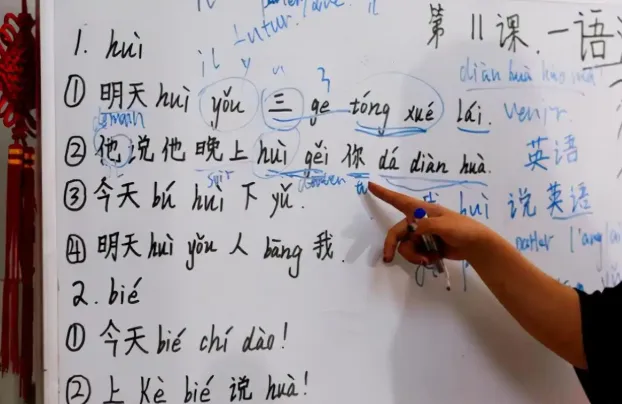 第 11 课. 一语
il futur.
1. huì
diàn huà hào mǎ
① 明天 huì yǒu 三 ge tóng xué lái. venir.
demain
② 他说他晚上 huì gěi 你 dá diàn huà. 英语
soir
③ 今天 bú huì 下 yǔ. huì 说英语
④ 明天 huì yǒu 人 bāng 我.
2. bié
① 今天 bié chí dào!
② 上 Kè bié 说 huà!